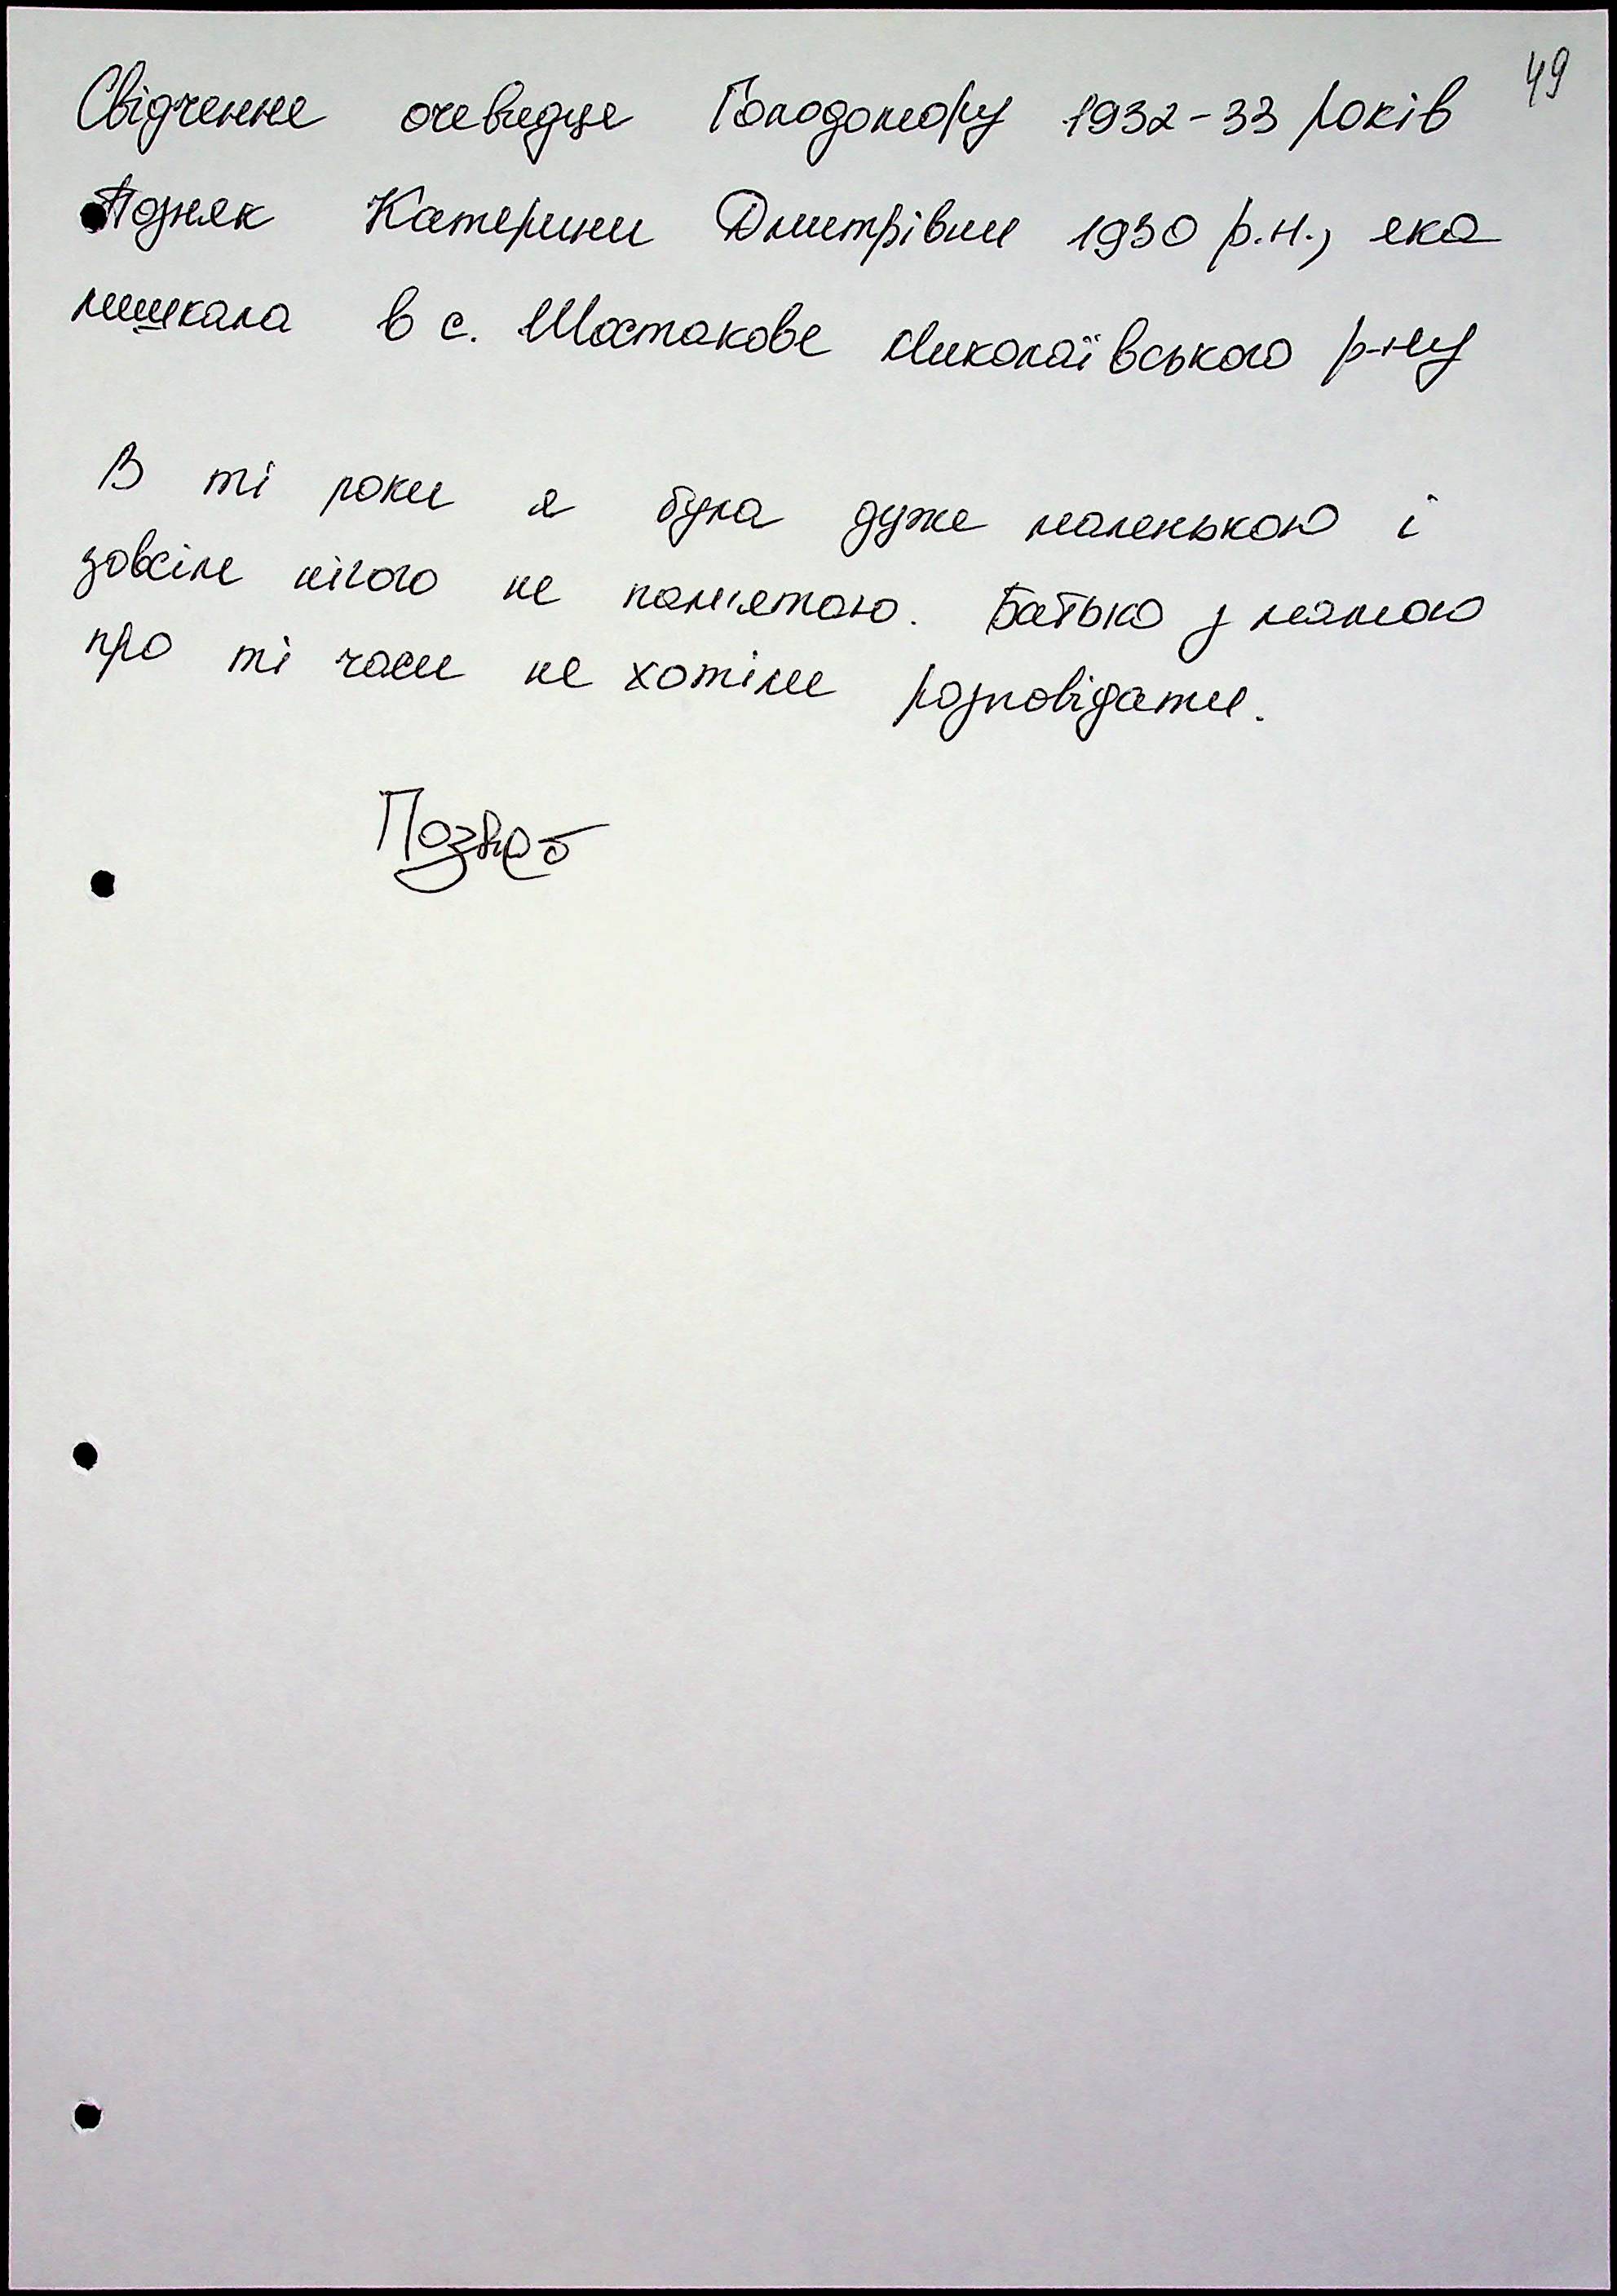 49
Свідчення очевидця Голодомору 1932-33 років
Позняк Катерини Дмитрівни 1930 р.н., яка
мешкала в с. Шостакове Миколаївського р-ну
В ті роки я була дуже маленькою і
зовсім нічого не пам'ятаю. Батько з мамою
про ті часи не хотіли розповідати.